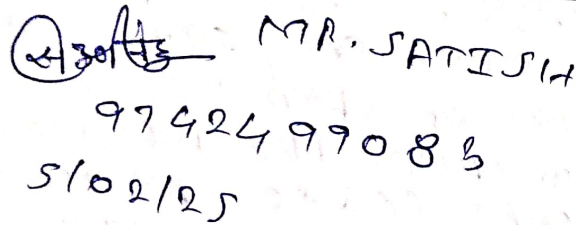 MR. SATISH
9742499083
5/02/25